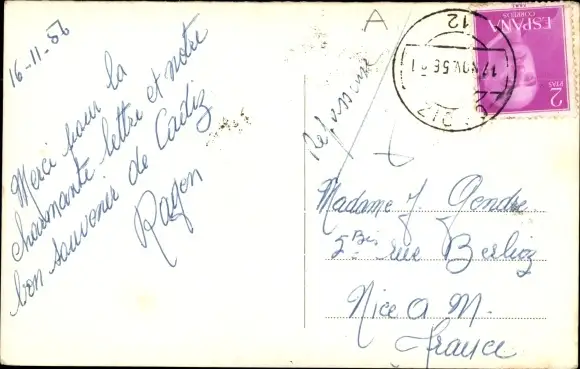 16-11-56
Merci pour la
charmante lettre et notre
bon souvenir de Cadiz
Ragon
A
Madame J. Gondre
5 Bis rue Berlioz
Nice A M.
France
12
17 NOV. 56
CADIZ
ESPAÑA
CORREOS
2
PTAS